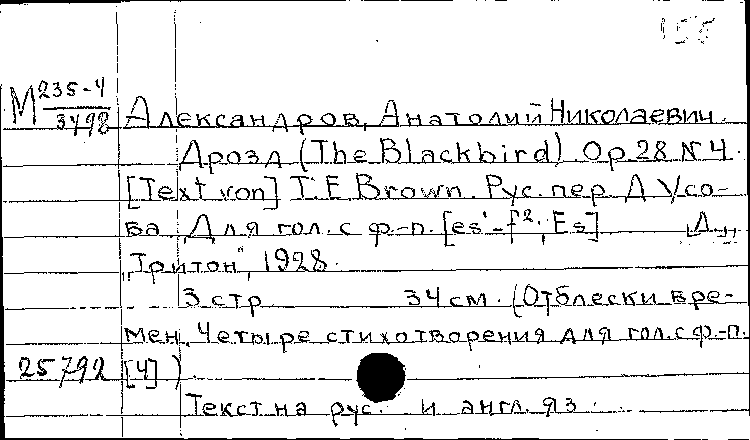 155
М 235-4/3498
Александров, Анатолий Николаевич.
Дрозд (The Blackbird) Op. 28 № 4.
[Text von] T. E. Brown. Рус. пер. Д. Усо-
ва. Для гол. с ф.-п. [es¹-f²; Es] Л.,
„Тритон", 1928.
3 стр. 34 см. (Отблески вре-
мен. Четыре стихотворения для гол. с ф.-п.
25792 [4])
Текст на рус. и англ. яз.